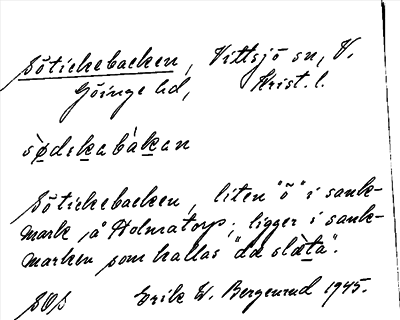 Sötickebacken, Vittsjö sn, V.
Göinge hd, Krist. l.
sø̀dıkabàkan
Sötickebacken, liten "ö" i sank-
mark på Holmatorp; ligger i sank-
marken som kallas "då slàta".
SOS Erik W. Bergenrud 1945.